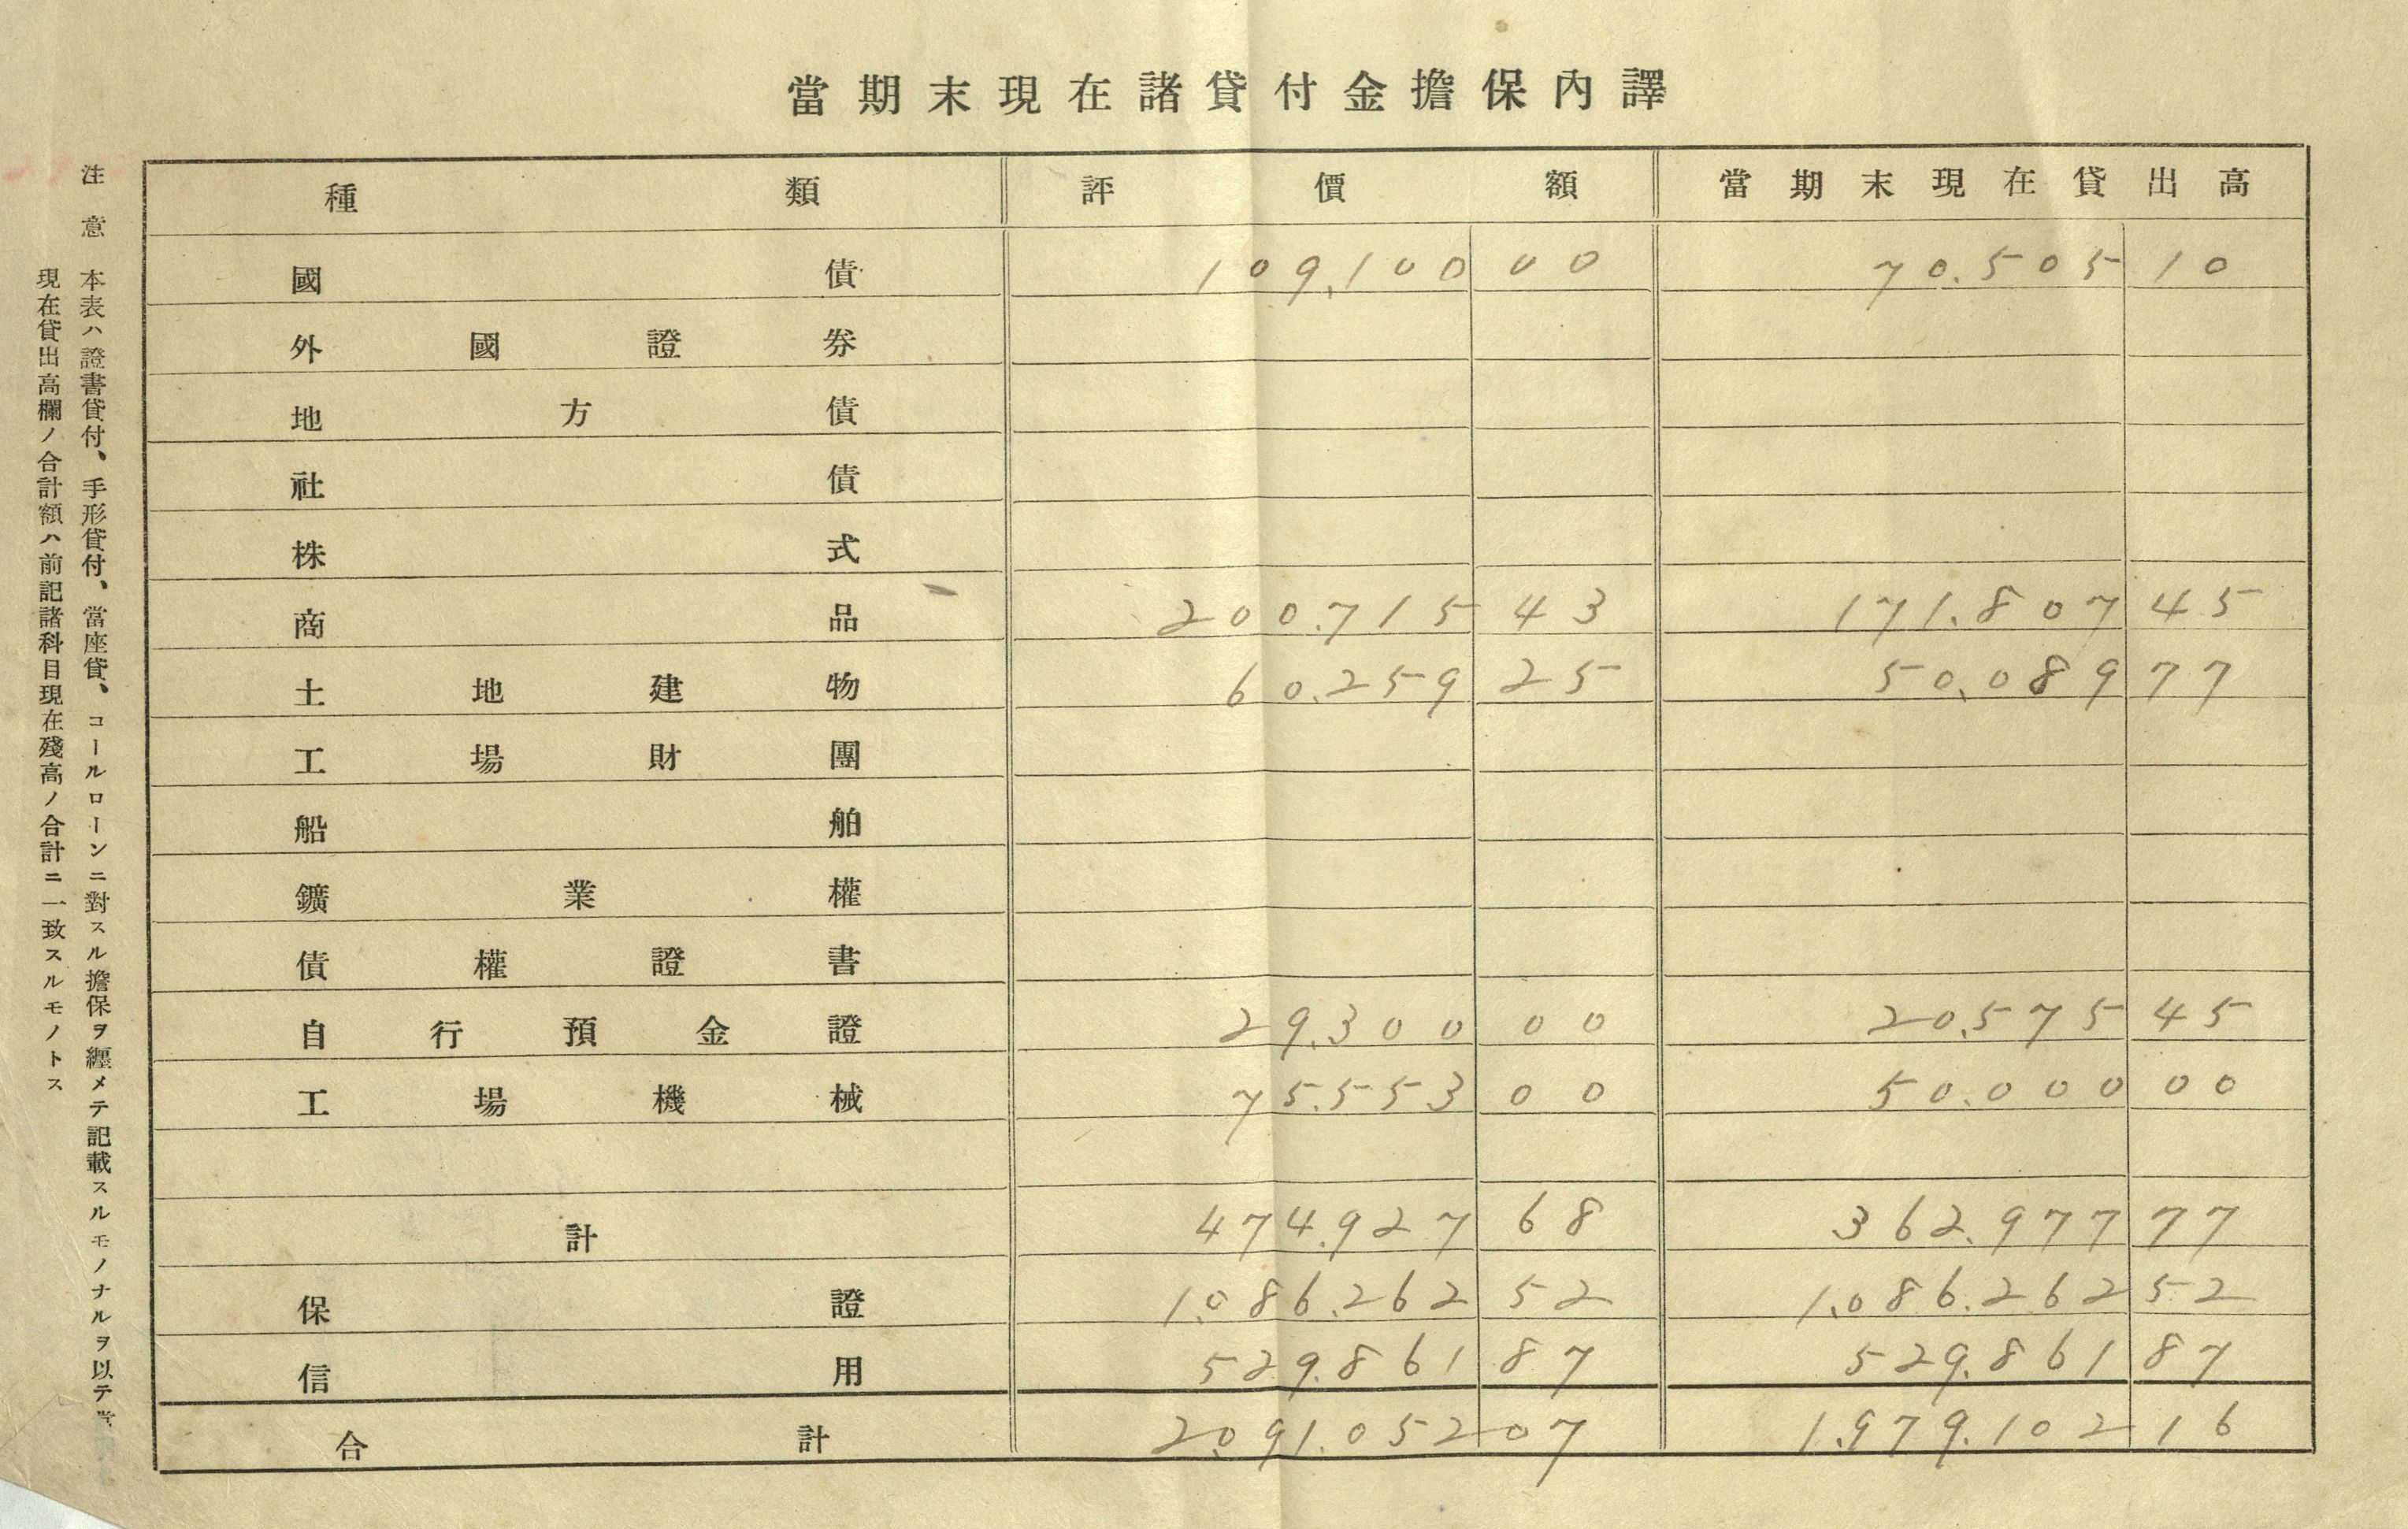 當期末現在諸貸付金擔保內譯
種類 評價額 當期末現在貸出高
國債 109,100 00 70.505 10
外國證券
地方債
社債
株式
商品 200.715 43 171.807 45
土地建物 60.259 25 50.089 77
工場財團
船舶
鑛業權
債權證書
自行預金證 29.300 00 20.575 45
工場機械 75.553 00 50.000 00
計 474.927 68 362.977 77
保證 1.086.262 52 1.086.262 52
信用 529.861 87 529.861 87
合計 2.091.052 07 1.979.102 16
注意 本表ハ證書貸付、手形貸付、當座貸、コールローンニ對スル擔保ヲ纒メテ記載スルモノナルヲ以テ當
現在貸出高欄ノ合計額ハ前記諸科目現在殘高ノ合計ニ一致スルモノトス